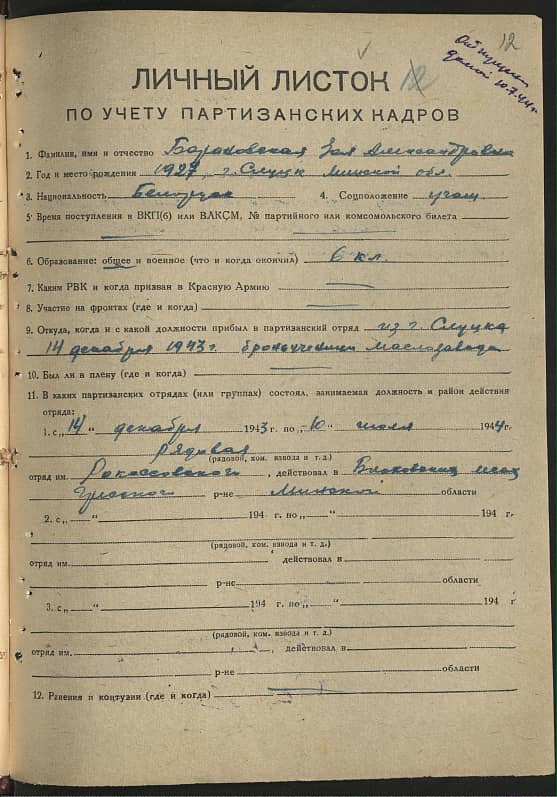 12
Отпущена
домой 10.7.44 г.
ЛИЧНЫЙ ЛИСТОК 12
ПО УЧЕТУ ПАРТИЗАНСКИХ КАДРОВ
1. Фамилия, имя и отчество Барановская Зоя Александровна
2. Год и место рождения 1927, г. Слуцк Минской обл.
3. Национальность Белоруска 4. Соцположение учащ.
5. Время поступления в ВКП(б) или ВЛКСМ, № партийного или комсомольского билета
6. Образование: общее и военное (что и когда окончил) 6 кл.
7. Каким РВК и когда призван в Красную Армию
8. Участие на фронтах (где и когда)
9. Откуда, когда и с какой должности прибыл в партизанский отряд из г. Слуцка
14 декабря 1943 г. Маслозавода
10. Был ли в плену (где и когда)
11. В каких партизанских отрядах (или группах) состоял, занимаемая должность и район действия
отряда:
1. с „14“ декабря 1943 г. по „10“ июля 1944 г.
рядовая
(рядовой, ком. взвода и т. д.)
отряд им. Рокоссовского, действовал в
Гресского р-не Минской области
2. с „ “ 194 г. по „ “ 194 г.
(рядовой, ком. взвода и т. д.)
отряд им. действовал в
р-не области
3. с „ “ 194 г. по „ “ 194 г
(рядовой, ком. взвода и т. д.)
отряд им. , действовал в
р-не области
12. Ранения и контузии (где и когда)